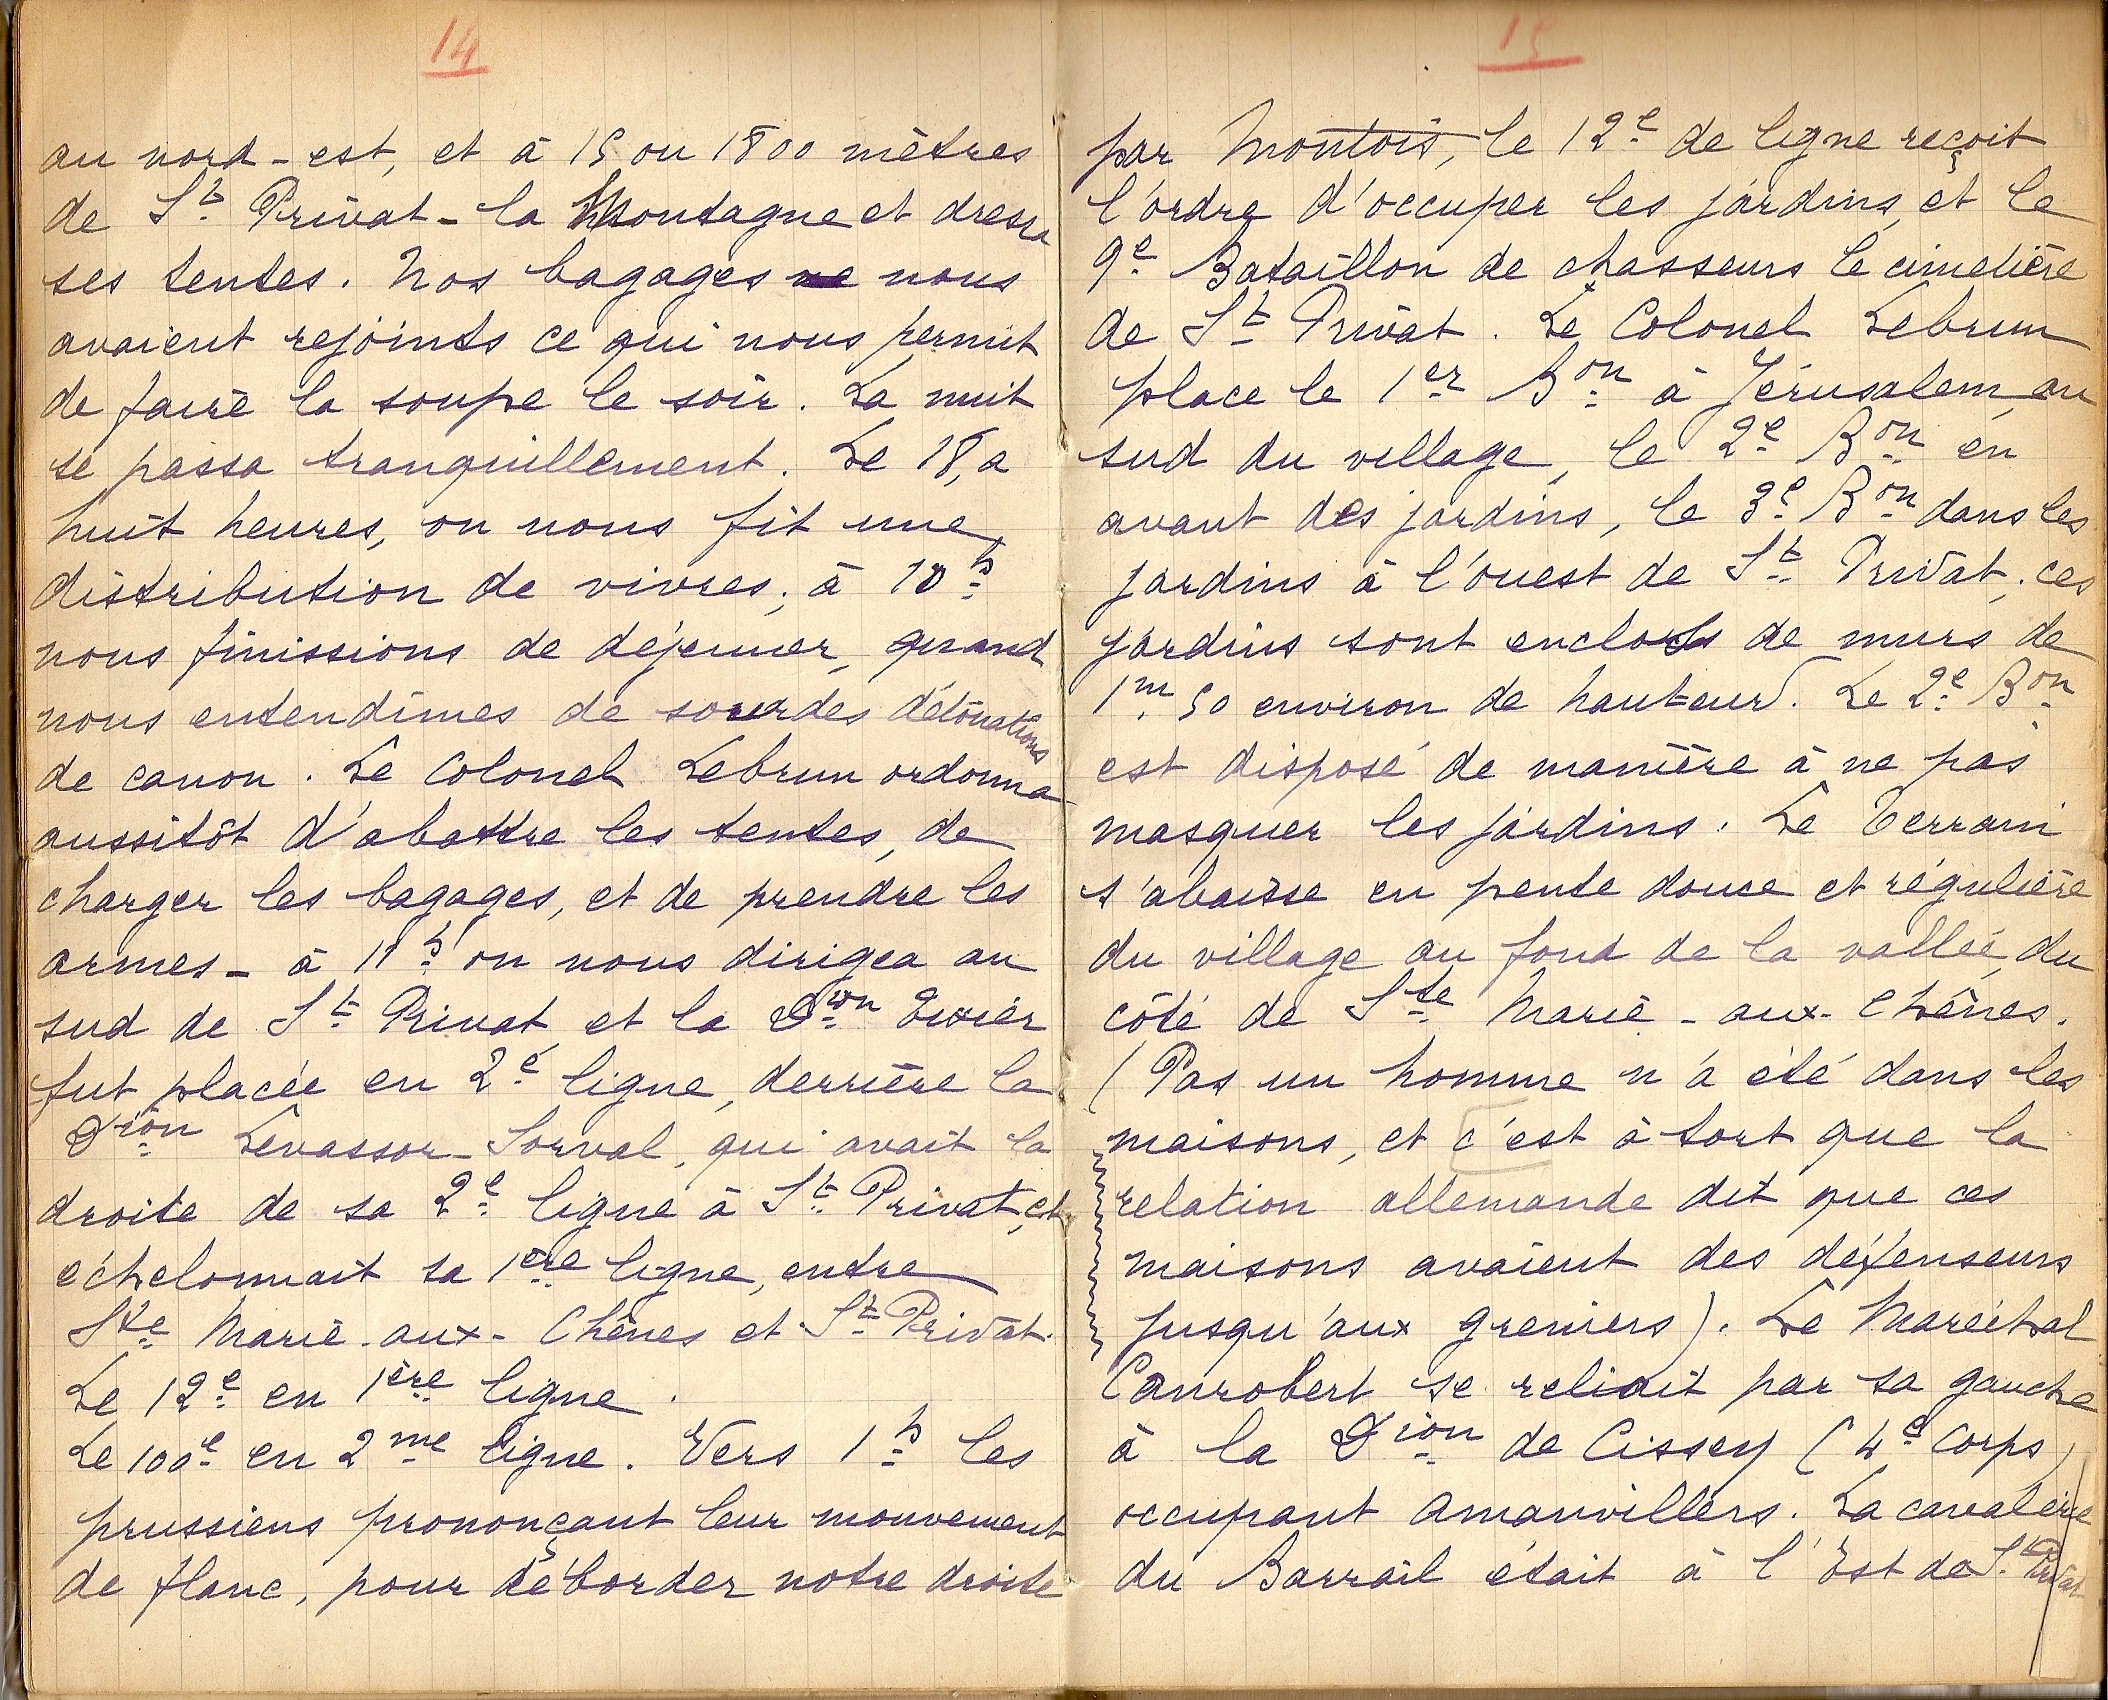 14
au nord-est, et à 15 ou 1800 mètres
de St Privat-la Montagne et dressa
ses tentes. Nos bagages nous
avaient rejoints ce qui nous permit
de faire la soupe le soir. La nuit
se passa tranquillement. Le 18, a
huit heures, on nous fit une
distribution de vivres; à 10h
nous finissions de déjeuner, quand
nous entendîmes de sourdes détonations
de canon. Le Colonel Lebrun ordonna
aussitôt d'abattre les tentes, de
charger les bagages, et de prendre les
armes - à 11h on nous dirigea au
sud de St Privat, et la Don Tixier
fut placée en 2e ligne, derrière la
Dion Levassor-Sorval, qui avait la
droite de sa 2e ligne à St Privat, et
échelonnait sa 1ère ligne, entre
Ste Marie-aux-Chênes et St Privat.
Le 12e en 1ère ligne.
Le 100e en 2me ligne. Vers 1h les
prussiens prononçant leur mouvement
de flanc, pour déborder notre droite
15
par Montois, le 12e de ligne reçoit
l'ordre d'occuper les jardins, et le
9e Bataillon de chasseurs le cimetière
de St Privat. Le Colonel Lebrun
place le 1er Bon à Jérusalem, au
sud du village, le 2e Bon en
avant des jardins, le 3e Bon dans les
jardins à l'ouest de St Privat; ces
jardins sont enclos de murs de
1m,50 environ de hauteur. Le 2e Bon
est disposé de manière à ne pas
masquer les jardins. Le Terrain
s'abaisse en pente douce et régulière
du village au fond de la vallée, du
côté de Ste Marie-aux-Chênes.
(Pas un homme n'a été dans les
maisons, et c'est à tort que la
relation allemande dit que ces
maisons avaient des défenseurs
jusqu'aux greniers). Le Maréchal
Canrobert se reliait par sa gauche
à la Dion de Cissey (4e Corps)
occupant Amanvillers. La cavalerie
du Barrail était à l'Est de St Privat